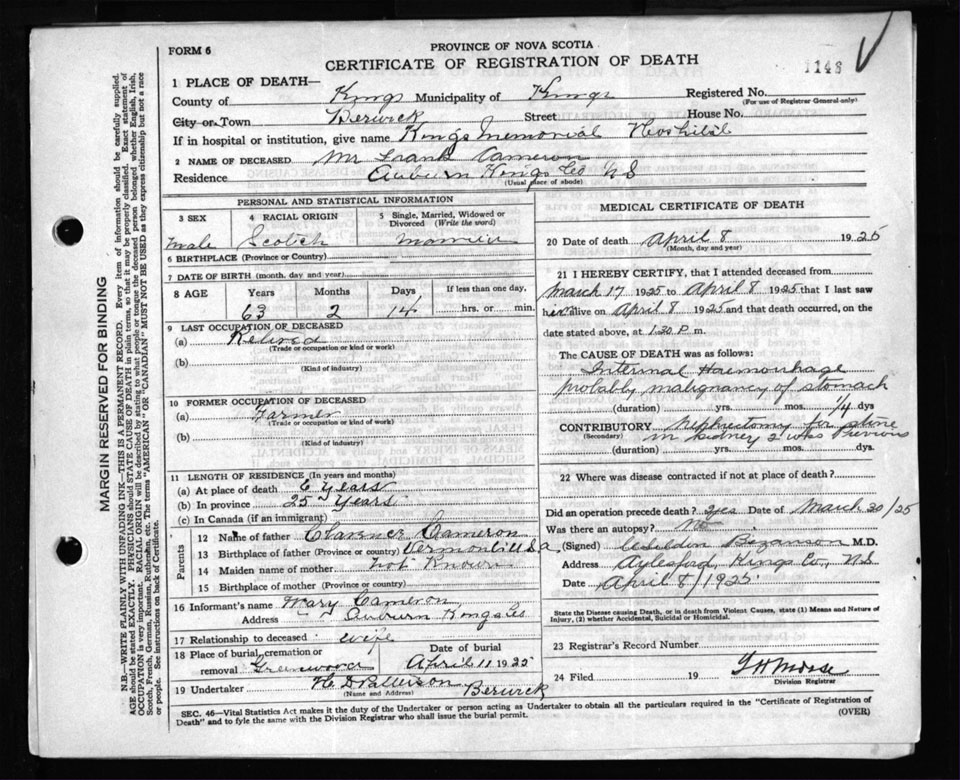 FORM 6
PROVINCE OF NOVA SCOTIA
CERTIFICATE OF REGISTRATION OF DEATH
1148
1 PLACE OF DEATH—
County of Kings Municipality of Kings Registered No.
(For use of Registrar General only)
City or Town Berwick Street House No.
If in hospital or institution, give name Kings Memorial Hospital
2 NAME OF DECEASED Mr Frank Cameron
Residence Auburn Kings Co NS
(Usual place of abode)
PERSONAL AND STATISTICAL INFORMATION
3 SEX 4 RACIAL ORIGIN 5 Single, Married, Widowed or Divorced (Write the word)
male Scotch
6 BIRTHPLACE (Province or Country)
7 DATE OF BIRTH (month, day and year)
8 AGE Years Months Days If less than one day,
63 2 14 hrs. or min.
9 LAST OCCUPATION OF DECEASED
(a) Retired
(Trade or occupation or kind or work)
(b)
(Kind of industry)
10 FORMER OCCUPATION OF DECEASED
(a) Farmer
(Trade or occupation or kind or work)
(b)
(Kind of industry)
11 LENGTH OF RESIDENCE (In years and months)
(a) At place of death 6 Years
(b) In province 25 Years
(c) In Canada (if an immigrant)
Parents
12 Name of father Clarence Cameron
13 Birthplace of father (Province or country)
14 Maiden name of mother not Known
15 Birthplace of mother (Province or country)
16 Informant's name Mary Cameron
Address Auburn Kings Co
17 Relationship to deceased wife
18 Place of burial, cremation or removal Greenwood
Date of burial April 11 1925
19 Undertaker H D Patterson Berwick
(Name and Address)
MEDICAL CERTIFICATE OF DEATH
20 Date of death April 8 1925
(Month, day and year)
21 I HEREBY CERTIFY, that I attended deceased from
March 17 1925 to April 8 1925 that I last saw
h alive on April 8 1925 and that death occurred, on
date stated above, at 1.30 P. m.
The CAUSE OF DEATH was as follows:
Internal Haemorrhage
probably malignancy of stomach
(duration) yrs. mos. 14 dys
CONTRIBUTORY Nephrectomy for stone
(Secondary) in kidney 2 wks Previous
(duration) yrs. mos. dys.
22 Where was disease contracted if not at place of death?
Did an operation precede death? yes Date of March 20/25
Was there an autopsy? No
(Signed) Bezanson M.D.
Address Aylesford, Kings Co., NS
Date April 8/1925
State the Disease causing Death, or in death from Violent Causes, state (1) Means and Nature of Injury, (2) whether Accidental, Suicidal or Homicidal.
23 Registrar's Record Number
24 Filed 19 Morse
Division Registrar
SEC. 46—Vital Statistics Act makes it the duty of the Undertaker or person acting as Undertaker to obtain all the particulars required in the "Certificate of Registration of
Death" and to fyle the same with the Division Registrar who shall issue the burial permit. (OVER)
MARGIN RESERVED FOR BINDING
N.B.—WRITE PLAINLY WITH UNFADING INK—THIS IS A PERMANENT RECORD. Every item of information should be carefully supplied.
AGE should be stated EXACTLY. PHYSICIANS should STATE CAUSE OF DEATH in plain terms, so that it may be properly classified. Exact statement of
OCCUPATION is very important. RACIAL ORIGIN will be described by stating to what people or tongue the deceased person belonged whether English, Irish,
Scotch, French, German, Russian, Ruthenian, etc. The terms "AMERICAN" OR "CANADIAN" MUST NOT BE USED as they express citizenship but not a race
or people. See instructions on back of Certificate.